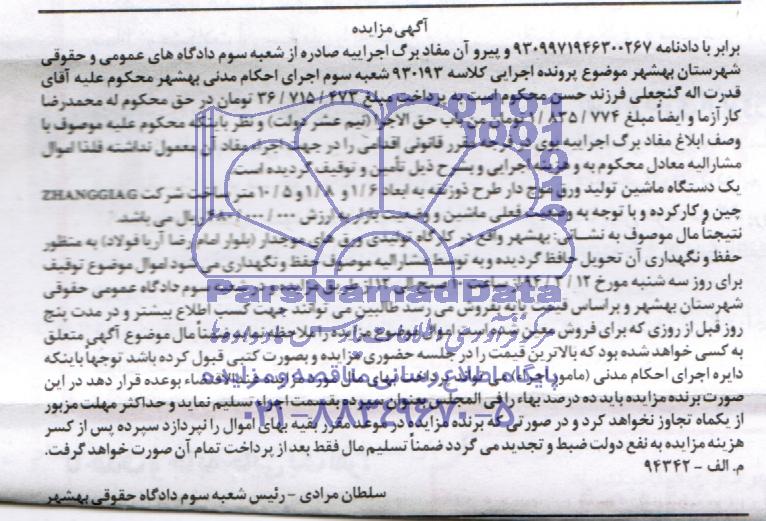 آگهی مزایده
برابر با دادنامه ۹۳۰۹۹۷۱۹۴۶۳۰۰۲۶۷ و پیرو آن مفاد برگ اجراییه صادره از شعبه سوم دادگاه های عمومی و حقوقی
شهرستان بهشهر موضوع پرونده اجرایی کلاسه ۹۳۰۱۹۳ شعبه سوم اجرای احکام مدنی بهشهر محکوم علیه آقای
قدرت اله گنجعلی فرزند حسن محکوم است به پرداخت مبلغ ۳۶/۷۱۵/۴۷۳ تومان در حق محکوم له محمدرضا
کارآزما و ایضاً مبلغ ۱/۸۳۵/۷۷۴ تومان من باب حق الاجرا (نیم عشر دولت) و نظر باینکه محکوم علیه موصوف با
وصف ابلاغ مفاد برگ اجراییه بوی در فرجه مقرر قانونی اقدامی را در جهت اجراء مفاد آن معمول نداشته فلذا اموال
مشارالیه معادل محکوم به و هزینه اجرایی و بشرح ذیل تأمین و توقیف گردیده است
یک دستگاه ماشین تولید ورق موج دار طرح ذوزنقه به ابعاد ۱/۶ و ۱/۸ و ۱۰/۵ متر ساخت شرکت ZHANGGIAG
چین و کارکرده و با توجه به وضعیت فعلی ماشین و وضعیت بازار به ارزش ۶۸۰/۰۰۰/۰۰۰ ریال می باشد.
نتیجتاً مال موصوف به نشانی: بهشهر واقع در کارگاه تولیدی ورق های موجدار (بلوار امام رضا آریا فولاد) به منظور
حفظ و نگهداری آن تحویل حافظ گردیده و به توسط مشارالیه موصوف حفظ و نگهداری می شود اموال موضوع توقیف
برای روز سه شنبه مورخ ۹۴/۲/۱۲ از ساعت ۱۰ صبح الی ۱۲ از طریق مزایده در شعبه سوم دادگاه عمومی حقوقی
شهرستان بهشهر و براساس قیمت پایه بفروش می رسد طالبین می توانند جهت کسب اطلاع بیشتر و در مدت پنج
روز قبل از روزی که برای فروش معلن شده است اموال موضوع مزایده را ملاحظه نمایند ضمناً مال موضوع آگهی متعلق
به کسی خواهد شده بود که بالاترین قیمت را در جلسه حضوری مزایده و بصورت کتبی قبول کرده باشد توجهاً باینکه
دایره اجرای احکام مدنی (مامور اجرا) می تواند پرداخت بهای مال مورد مزایده عندالاقتضاء بوعده قرار دهد در این
صورت برنده مزایده باید ده درصد بهاء را فی المجلس بعنوان سپرده بقسمت اجراء تسلیم نماید و حداکثر مهلت مزبور
از یکماه تجاوز نخواهد کرد و در صورتی که برنده مزایده در موعد مقرر بقیه بهای اموال را نپردازد سپرده پس از کسر
هزینه مزایده به نفع دولت ضبط و تجدید می گردد ضمناً تسلیم مال فقط بعد از پرداخت تمام آن صورت خواهد گرفت.
م. الف - ۹۴۳۴۲
سلطان مرادی - رئیس شعبه سوم دادگاه حقوقی بهشهر
ParsNamadData
پایگاه اطلاع رسانی مناقصه و مزایده
۰۲۱-۸۸۳۴۹۶۷۰-۵